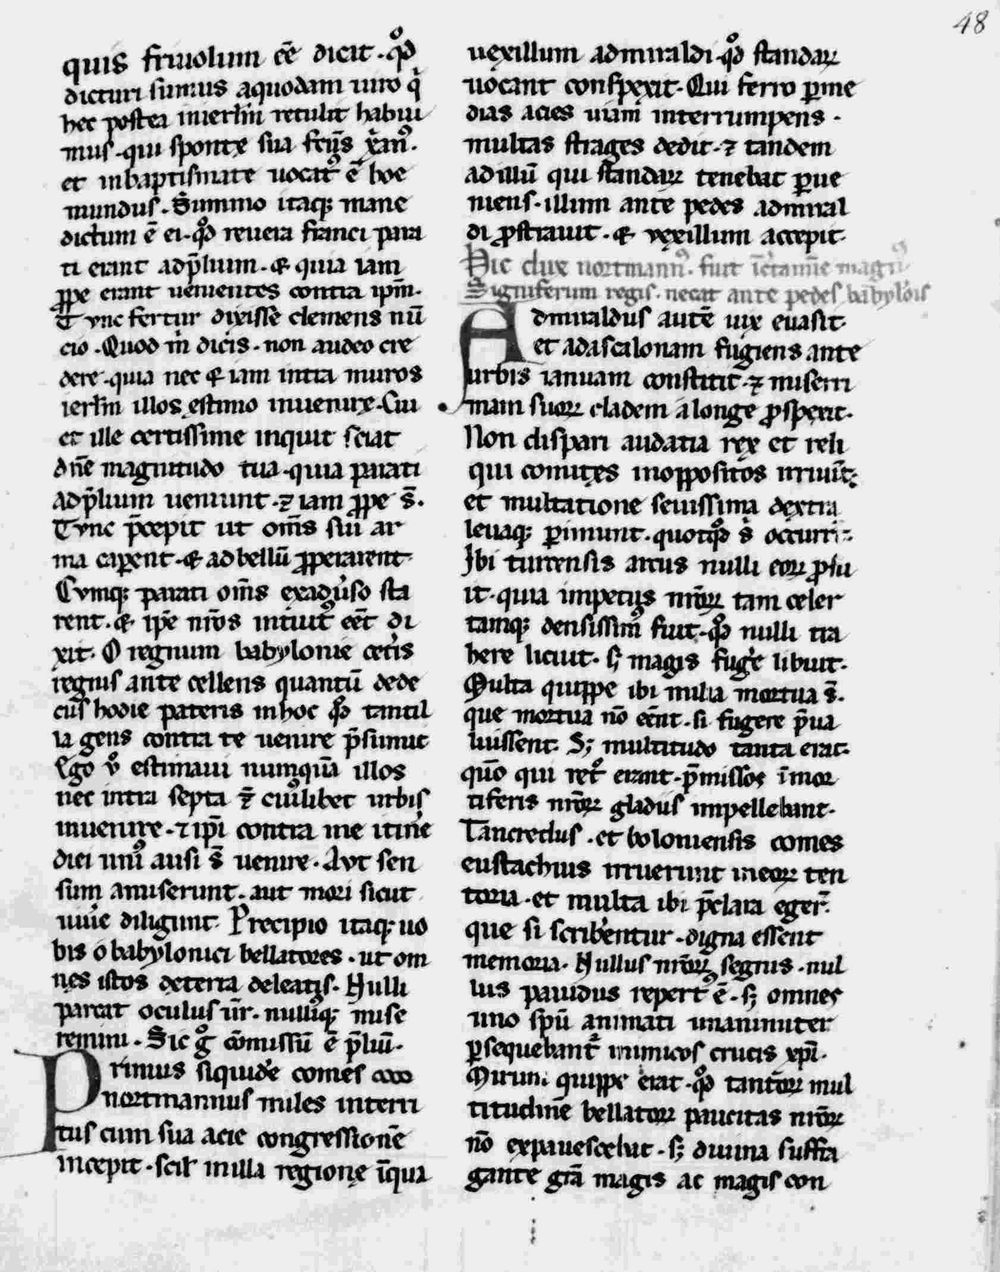 48
quis friuolum eē dicit · qͦd
dicturi sumus aquodam uiro q̇
hec postea inierlm̄ retulit habui
mus · qui sponte sua feṙs xān⁹.
et inbaptismate uocat⁹ ē boe
mundus . Summo itaq; mane
dictum ē ei · qͦd reuera franci para
ti erant adp̄lium · & quia iam
ꝓpe erant uenientes contra ipm̄ ·
Tunc fertur dixisse clemens nū
cio . Quod m̄ dicis · non audeo cre
dere · quia nec & iam intra muros
ierlm̄ illos estimo inuenire . Cui
et ille certissime inquit sciat
dn̄e magnitudo tua · quia parati
adp̄lium ueniunt · ⁊ iam ꝓpe s̄.
Tunc p̄cepit ut om̄s sui ar
ma caꝑent · & adbellū ꝓꝑarent
Cumq; parati om̄s exaduṡo sta
rent · & ipe nr̄os intuit⁹ eēt di
xit · O regnum babylonie cetis
regnis ante cellens quantū dede
cus hodie pateris inhoc qͦd tantil
la gens contra te uenire p̄sumit
Ego uͦ estimaui numquā illos
nec intra septa ⁊ cui⁹libet urbis
inuenire · ⁊ ipi contra me itine
diei uni⁹ ausi s̄ uenire . Aut sen
sum amiserunt · aut mori sicut
uiuere diligunt · Precipio itaq; uo
bis o babylonici bellatores · ut om
nes istos deterra deleatis · Nulli
parcat oculus ur̄ · nulliq; mise
remini · Sic gͦ cōmissū ē p̄liū ·
Primus siquidē comes
nortmannus miles interri
tus cum sua acie congressionē
incepit · scil' in illa regione īqua
uexillum admiraldi · qͦd standarꝝ
uocant conspexit · Qui ferro ꝑme
dias acies uiam interrumpens ·
multas strages dedit · ⁊ tandem
ad illū qui standarꝝ tenebat ꝑue
niens · illum ante pedes admiral
di ꝓstrauit · & uexillum accepit ·
Hic dux nortmann⁹ . fuit īc̄tamīe magn⁹
Signiferum regis . necat ante pedes babylōis
Admiraldus autē uix euasit ·
et adascalonam fugiens ante
urbis ianuam constitit · ⁊ miserri
mam suorꝝ cladem alonge ꝓspexit ·
Non dispari audatia rex et reli
qui comites inoppositos irruūt ·
et multatione seuissima dextra
leuaq; ꝑimunt · quotqͦd s̄ occurri ·
Ibi turcensis arcus nulli eorꝝ ꝓfu
it · quia impetus nr̄orꝝ tam celer
tamq; densissim⁹ fuit · qͦd nulli tra
here licuit · s; magis fugere libuit ·
Multa quippe ibi milia mortua s̄.
que mortua nō eēnt · si fugere p̄ua
luissent · S; multitudo tanta erat ·
quō qui ret⁹ erant · p̄missos ī mor
tiferis nr̄orꝝ gladiis impellebant ·
Tancredus . et boloniensis comes
eustachius irruerunt ineorꝝ ten
toria · et multa ibi p̄clara eger̄ ·
que si scriberentur · digna essent
memoria · Nullus nr̄orꝝ segnis · nul
lus pauidus repert⁹ ē · s; omnes
uno spū animati unanimiter
ꝑsequebant⁹ inimicos crucis xp̄i ·
Mirum quippe erat · qͦd tantorꝝ mul
titudinē bellatorꝝ paucitas nr̄orꝝ
nō expauescebat · s; diuina suffra
gante grā magis ac magis con